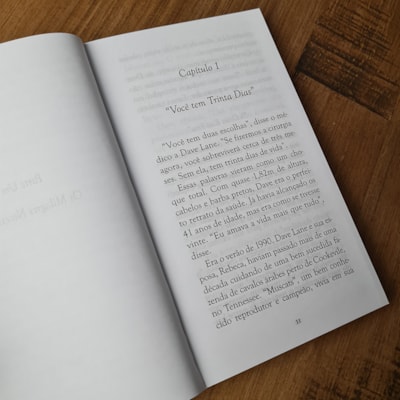 Capítulo 1
"Você tem Trinta Dias"
"Você tem duas escolhas", disse o mé-
dico a Dave Lane. "Se fizermos a cirurgia
agora, você sobreviverá cerca de três me-
ses. Sem ela, tem trinta dias de vida".
Essas palavras vieram como um cho-
que total. Com quase 1,82m de altura,
cabelos e barba pretos, Dave era o perfei-
to retrato da saúde. Já havia alcançado os
41 anos de idade, mas era como se tivesse
vinte. "Eu amava a vida mais que tudo",
disse.
Era o verão de 1990. Dave Lane e sua es-
posa, Rebeca, haviam passado mais de uma
década cuidando de uma bem sucedida fa-
zenda de cavalos árabes perto de Cookeville,
no Tennessee. "Muscats", um bem conhe-
cido reprodutor e campeão, vivia em sua
11